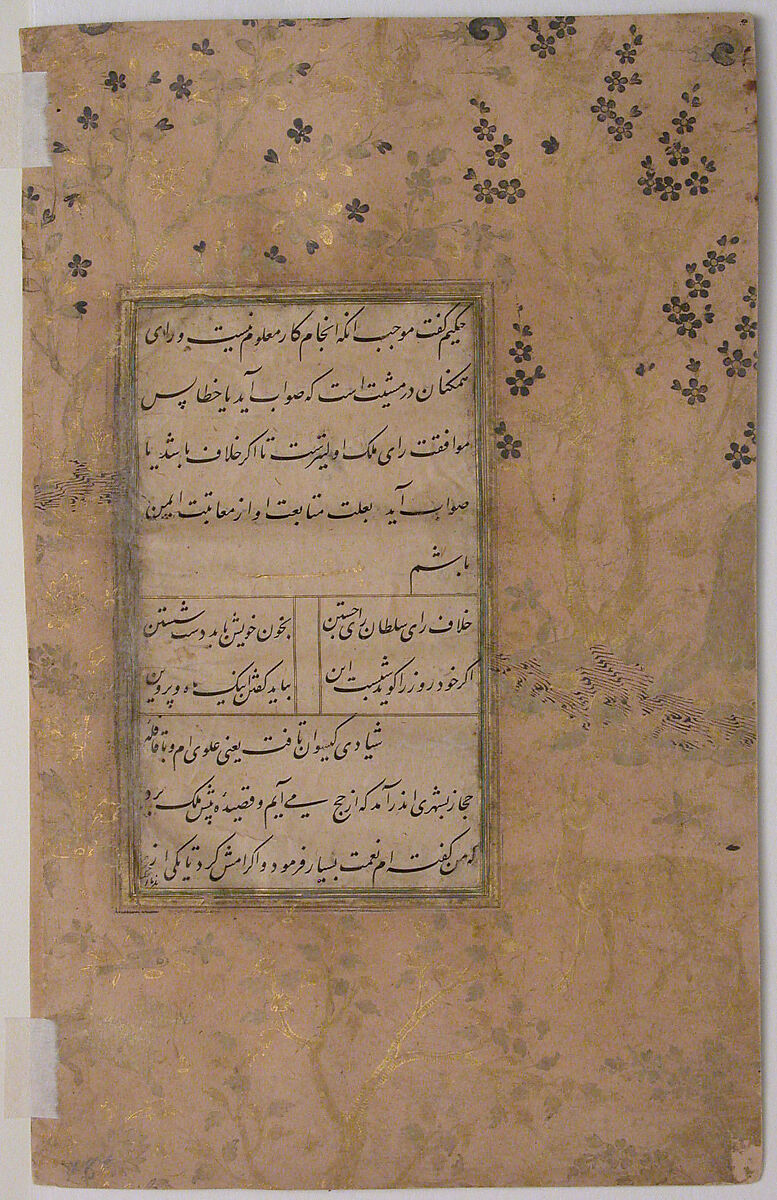 حکیم گفت موجب آنکه انجام کار معلوم نیست و رای
همکنان در مشیت است که صواب آید یا خطا پس
موافقت رای ملک اولیترست تا اگر خلاف باشد یا
صواب آید بعلت متابعت او از معاتبت ایمن
باشم
خلاف رای سلطان رای جستن بخون خویش باید دست شستن
اگر خود روز را گوید شبست این بباید گفتن اینک ماه و پروین
شیادی گیسوان تافت یعنی علوی ام و با قافلهٔ
حجاز بشهری اندر آمد که از حج می آیم و قصیدهٔ پیش ملک برد
که من گفته ام نعمت بسیار فرمود و اکرامش کرد تا یکی از